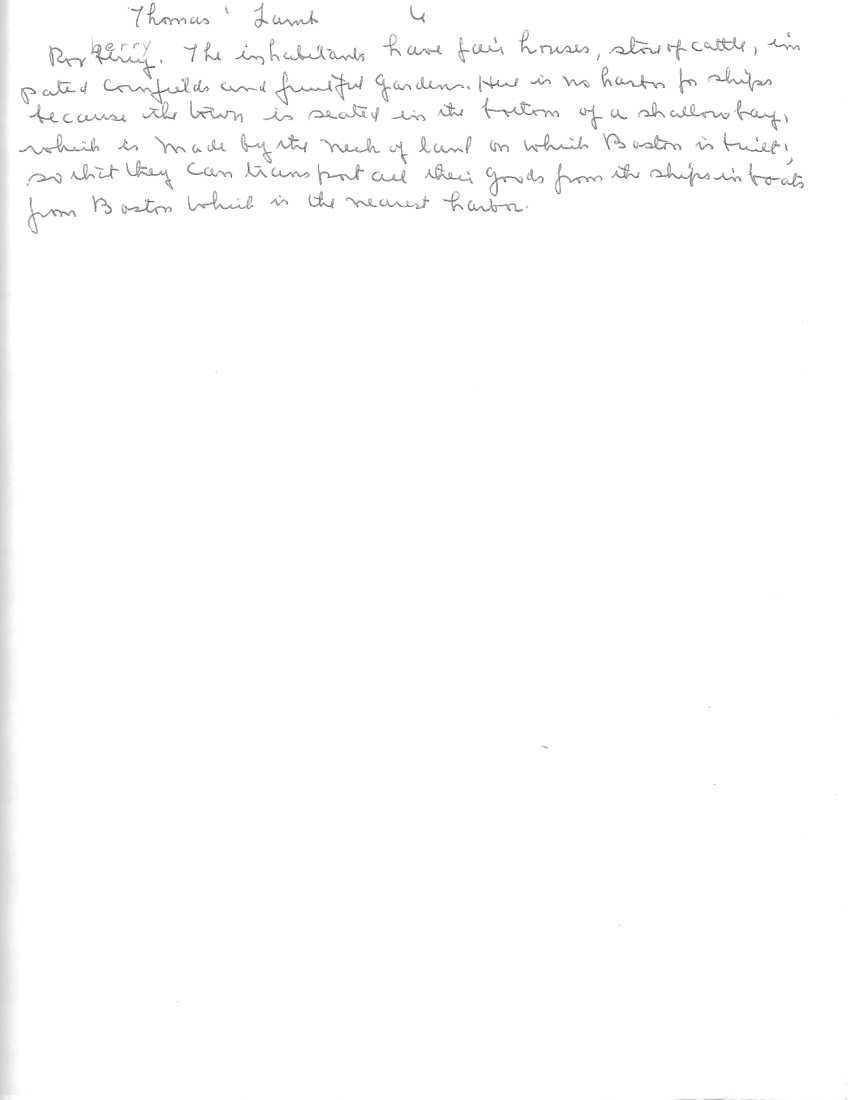 Thomas Lamb 4
Roxberry. The inhabitants have fair houses, store of cattle, im
pated Cornfields and fruitful Gardens. Here is no harbor for ships
because the town is seated in the bottom of a shallow bay,
which is made by the neck of land on which Boston is built,
so that they can transport all their goods from the ships in boats
from Boston which is the nearest harbor.